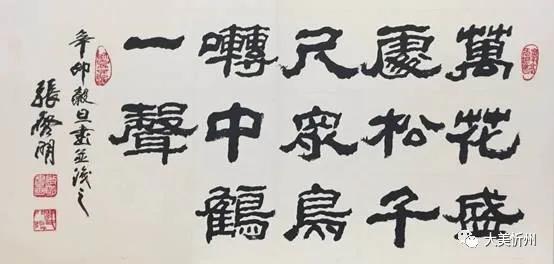 萬花盛
處松千
尺眾鳥
囀中鶴
一聲
辛卯穀旦書並識之
張啓明
大美忻州